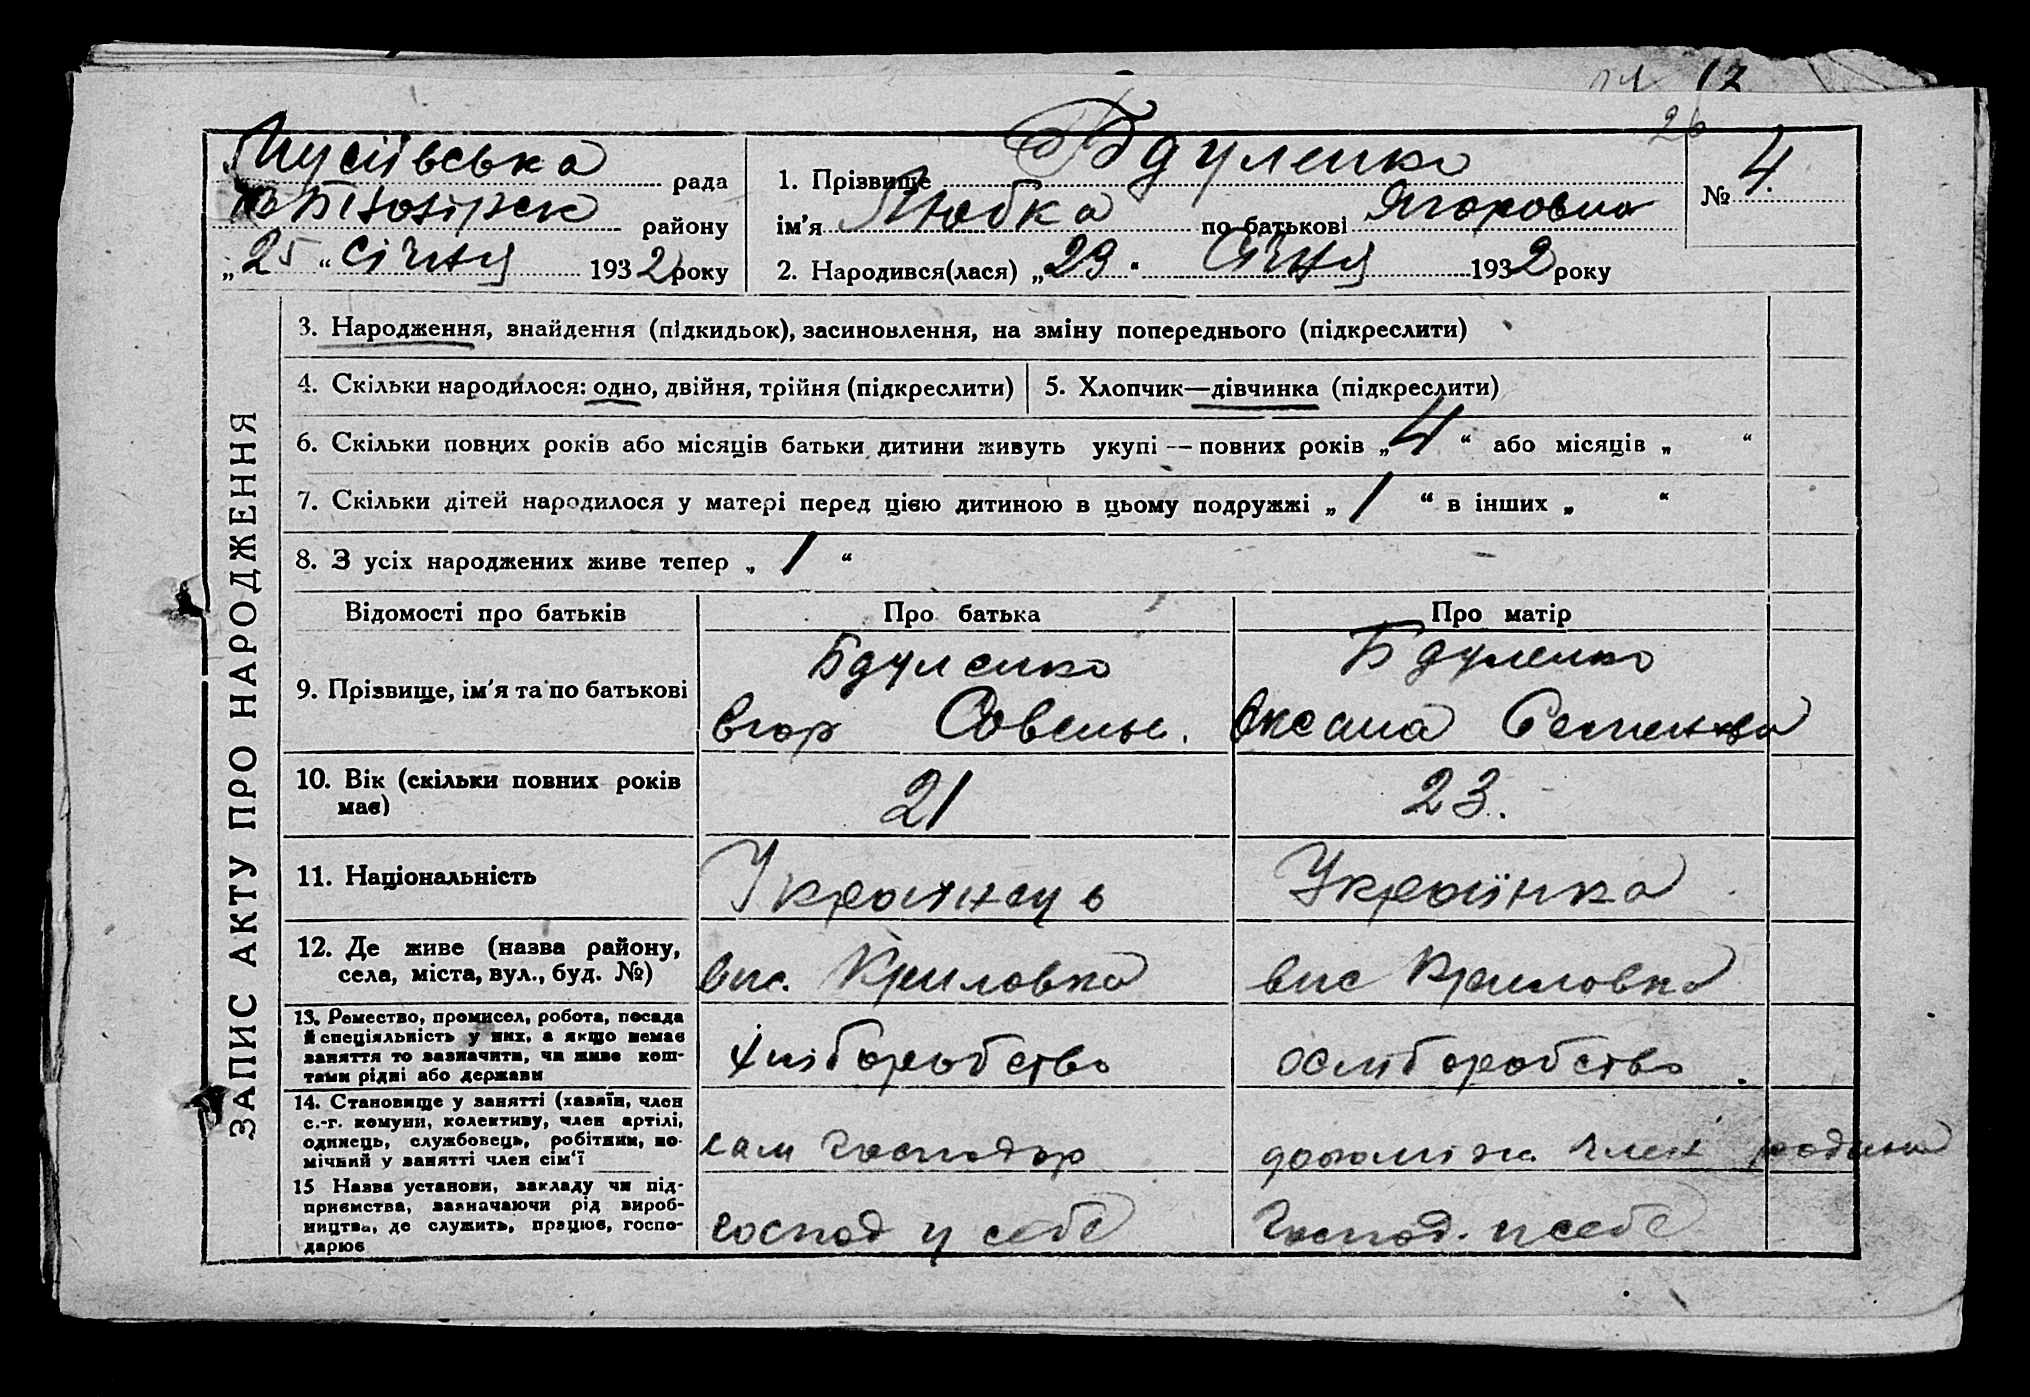 12
26
Мусіївська рада
В Білозірськ району
„25“ Січня 1932 року
1. Прізвище Бдуленко
ім'я Любка по батькові Ягоровна
2. Народився(лася) „29“ Січня 1932 року
№ 4.
ЗАПИС АКТУ ПРО НАРОДЖЕННЯ
3. Народження, знайдення (підкидьок), засиновлення, на зміну попереднього (підкреслити)
4. Скільки народилося: одно, двійня, трійня (підкреслити)
5. Хлопчик—дівчинка (підкреслити)
6. Скільки повних років або місяців батьки дитини живуть укупі — повних років „4“ або місяців „ “
7. Скільки дітей народилося у матері перед цією дитиною в цьому подружжі „1“ в інших „ “
8. З усіх народжених живе тепер „1“
Відомості про батьків
Про батька
Про матір
9. Прізвище, ім'я та по батькові
Бдуленко
Єгор Савельє.
Бдуленко
Оксана Семенова
10. Вік (скільки повних років
має)
21
23.
11. Національність
Українець
Українка
12. Де живе (назва району,
села, міста, вул., буд. №)
вис. Криловка
вис Криловка
13. Ремество, промисел, робота, посада
й спеціяльність у них, а якщо немає
заняття то зазначити, чи живе кош-
тами рідні або держави
хліборобство
хліборобство
14. Становище у занятті (хазяїн, член
с.-г. комуни, колективу, член артілі,
одинець, службовець, робітник, по-
мічний у занятті член сім'ї
сам господар
допоміж. член родини
15 Назва установи, закладу чи під-
приємства, зазначаючи рід вироб-
ництва, де служить, працює, госпо-
дарює
господ у себе
господ. у себе